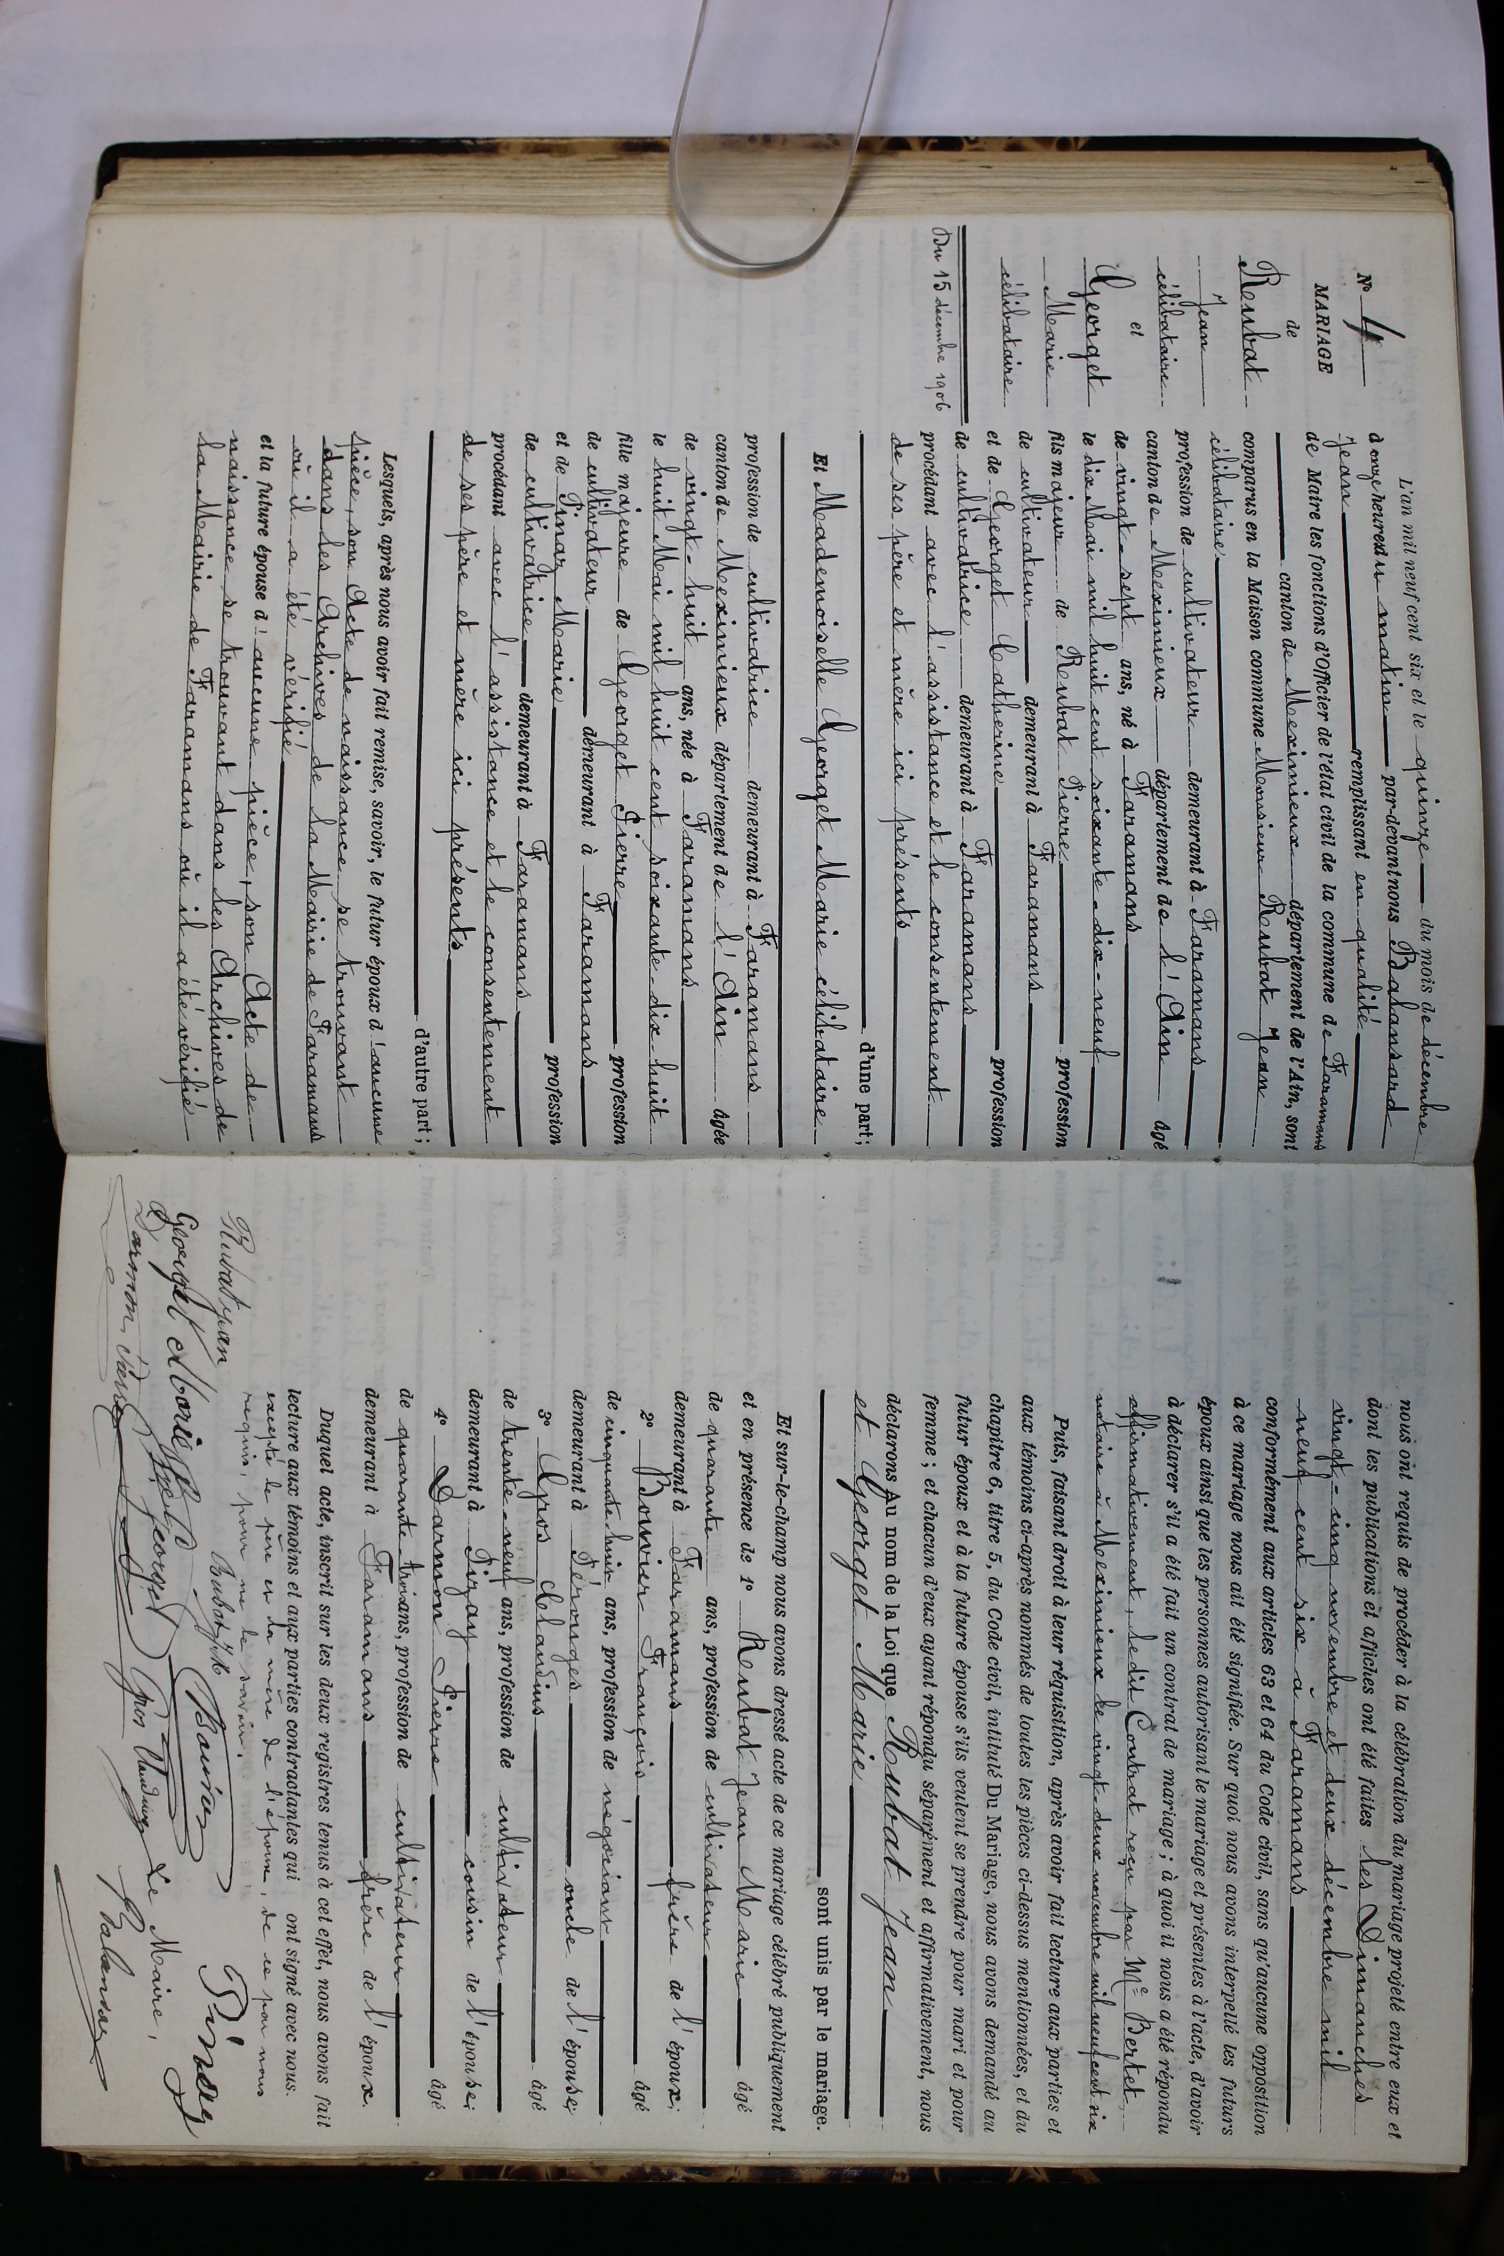 N° 4
MARIAGE
de
Rubat
Jean
célibataire
et
Georget
Marie
célibataire
Du 15 décembre 1906
L'an mil neuf cent six et le quinze du mois de décembre
à onze heures du matin par-devant nous Balansard
Jean remplissant en qualité
de Maire les fonctions d'Officier de l'état civil de la commune de Faramans
canton de Meximieux département de l'Ain, sont
comparus en la Maison commune Monsieur Rubat Jean
célibataire
profession de cultivateur demeurant à Faramans
canton de Meximieux département de l'Ain âgé
de vingt-sept ans, né à Faramans
le dix Mai mil huit cent soixante-dix-neuf
fils majeur de Rubat Pierre profession
de cultivateur demeurant à Faramans
et de Georget Catherine profession
de cultivatrice demeurant à Faramans
procédant avec l'assistance et le consentement
de ses père et mère ici présents
d'une part;
Et Mademoiselle Georget Marie célibataire
profession de cultivatrice demeurant à Faramans
canton de Meximieux département de l'Ain âgée
de vingt-huit ans, née à Faramans
le huit Mai mil huit cent soixante-dix huit
fille majeure de Georget Pierre profession
de cultivateur demeurant à Faramans
et de Pinaz Marie profession
de cultivatrice demeurant à Faramans
procédant avec l'assistance et le consentement
de ses père et mère ici présents
d'autre part;
Lesquels, après nous avoir fait remise, savoir, le futur époux d'aucune
pièce, son Acte de naissance se trouvant
dans les Archives de la Mairie de Faramans
où il a été vérifié
et la future épouse d'aucune pièce, son Acte de
naissance se trouvant dans les Archives de
la Mairie de Faramans où il a été vérifié
nous ont requis de procéder à la célébration du mariage projeté entre eux et
dont les publications et affiches ont été faites les Dimanches
vingt-cinq novembre et deux décembre mil
neuf cent six à Faramans
conformément aux articles 63 et 64 du Code civil, sans qu'aucune opposition
à ce mariage nous ait été signifiée. Sur quoi nous avons interpellé les futurs
époux ainsi que les personnes autorisant le mariage et présentes à l'acte, d'avoir
à déclarer s'il a été fait un contrat de mariage; à quoi il nous a été répondu
affirmativement, ledit Contrat reçu par Me Bertet,
notaire à Meximieux le vingt-deux novembre mil neuf cent six
Puis, faisant droit à leur réquisition, après avoir fait lecture aux parties et
aux témoins ci-après nommés de toutes les pièces ci-dessus mentionnées, et du
chapitre 6, titre 5, du Code civil, intitulé Du Mariage, nous avons demandé au
futur époux et à la future épouse s'ils veulent se prendre pour mari et pour
femme; et chacun d'eux ayant répondu séparément et affirmativement, nous
déclarons Au nom de la Loi que Rubat Jean
et Georget Marie
sont unis par le mariage.
Et sur-le-champ nous avons dressé acte de ce mariage célébré publiquement
et en présence de 1° Rubat Jean Marie âgé
de quarante ans, profession de cultivateur
demeurant à Faramans frère de l'époux;
2° Bouvier François âgé
de cinquante huit ans, profession de négociant
demeurant à Pérouges oncle de l'épouse;
3° Gros Claudius âgé
de trente-neuf ans, profession de cultivateur
demeurant à Pizay cousin de l'épouse;
4° Darmon Pierre âgé
de quarante-trois ans, profession de cultivateur
demeurant à Faramans frère de l'époux.
Duquel acte, inscrit sur les deux registres tenus à cet effet, nous avons fait
lecture aux témoins et aux parties contractantes qui ont signé avec nous.
excepté le père et la mère de l'épouse, de ce par nous
requis, pour ne le savoir.
Rubat Jean
Rubat J M
Bouvier
Pinaz
Georget Marie
Georget
Gros Claudius
Le Maire,
Darmon Pierre
Balansard